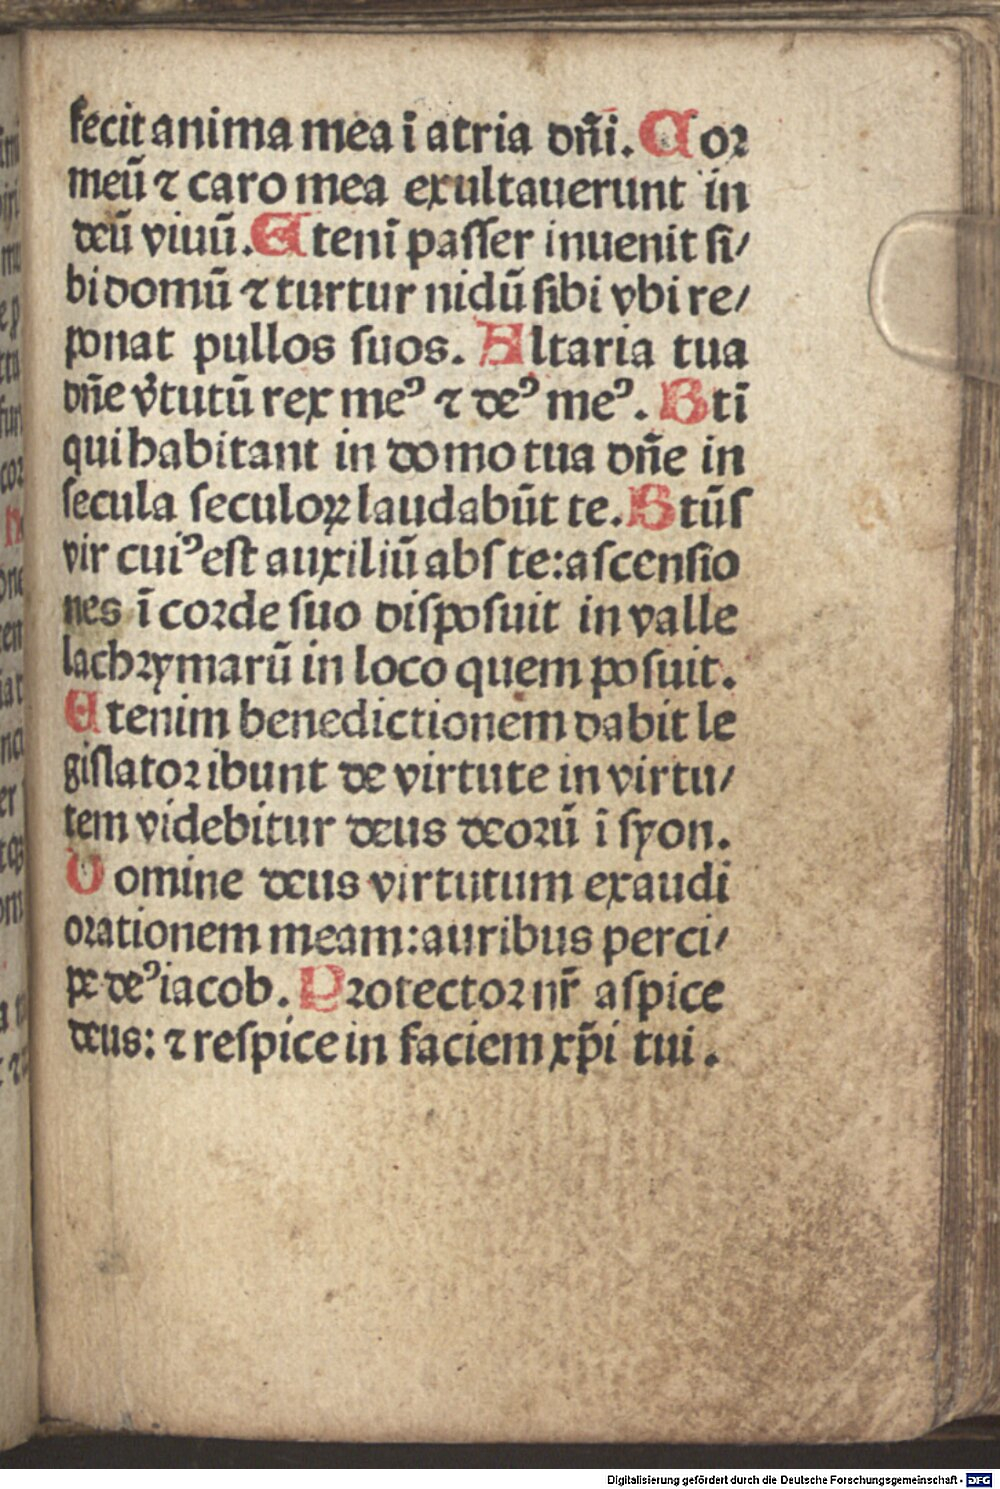 fecit anima mea ī atria dñi. Cor
meū ⁊ caro mea exultauerunt in
deū viuū. Etenī passer inuenit si/
bi domū ⁊ turtur nidū sibi vbi re/
ponat pullos suos. Altaria tua
dñe v̄tutū rex meꝰ ⁊ deꝰ meꝰ. Btī
qui habitant in domo tua dñe in
secula seculoꝝ laudabūt te. Btūs
vir cuiꝰ est auxiliū abs te: ascensio
nes ī corde suo disposuit in valle
lachrymarū in loco quem posuit.
Etenim benedictionem dabit le
gislator ibunt de virtute in virtu/
tem videbitur deus deorū ī syon.
Domine deus virtutum exaudi
orationem meam: auribus perci/
pe deꝰ iacob. Protector nr̄ aspice
deus: ⁊ respice in faciem xp̄i tui.
Digitalisierung gefördert durch die Deutsche Forschungsgemeinschaft - DFG